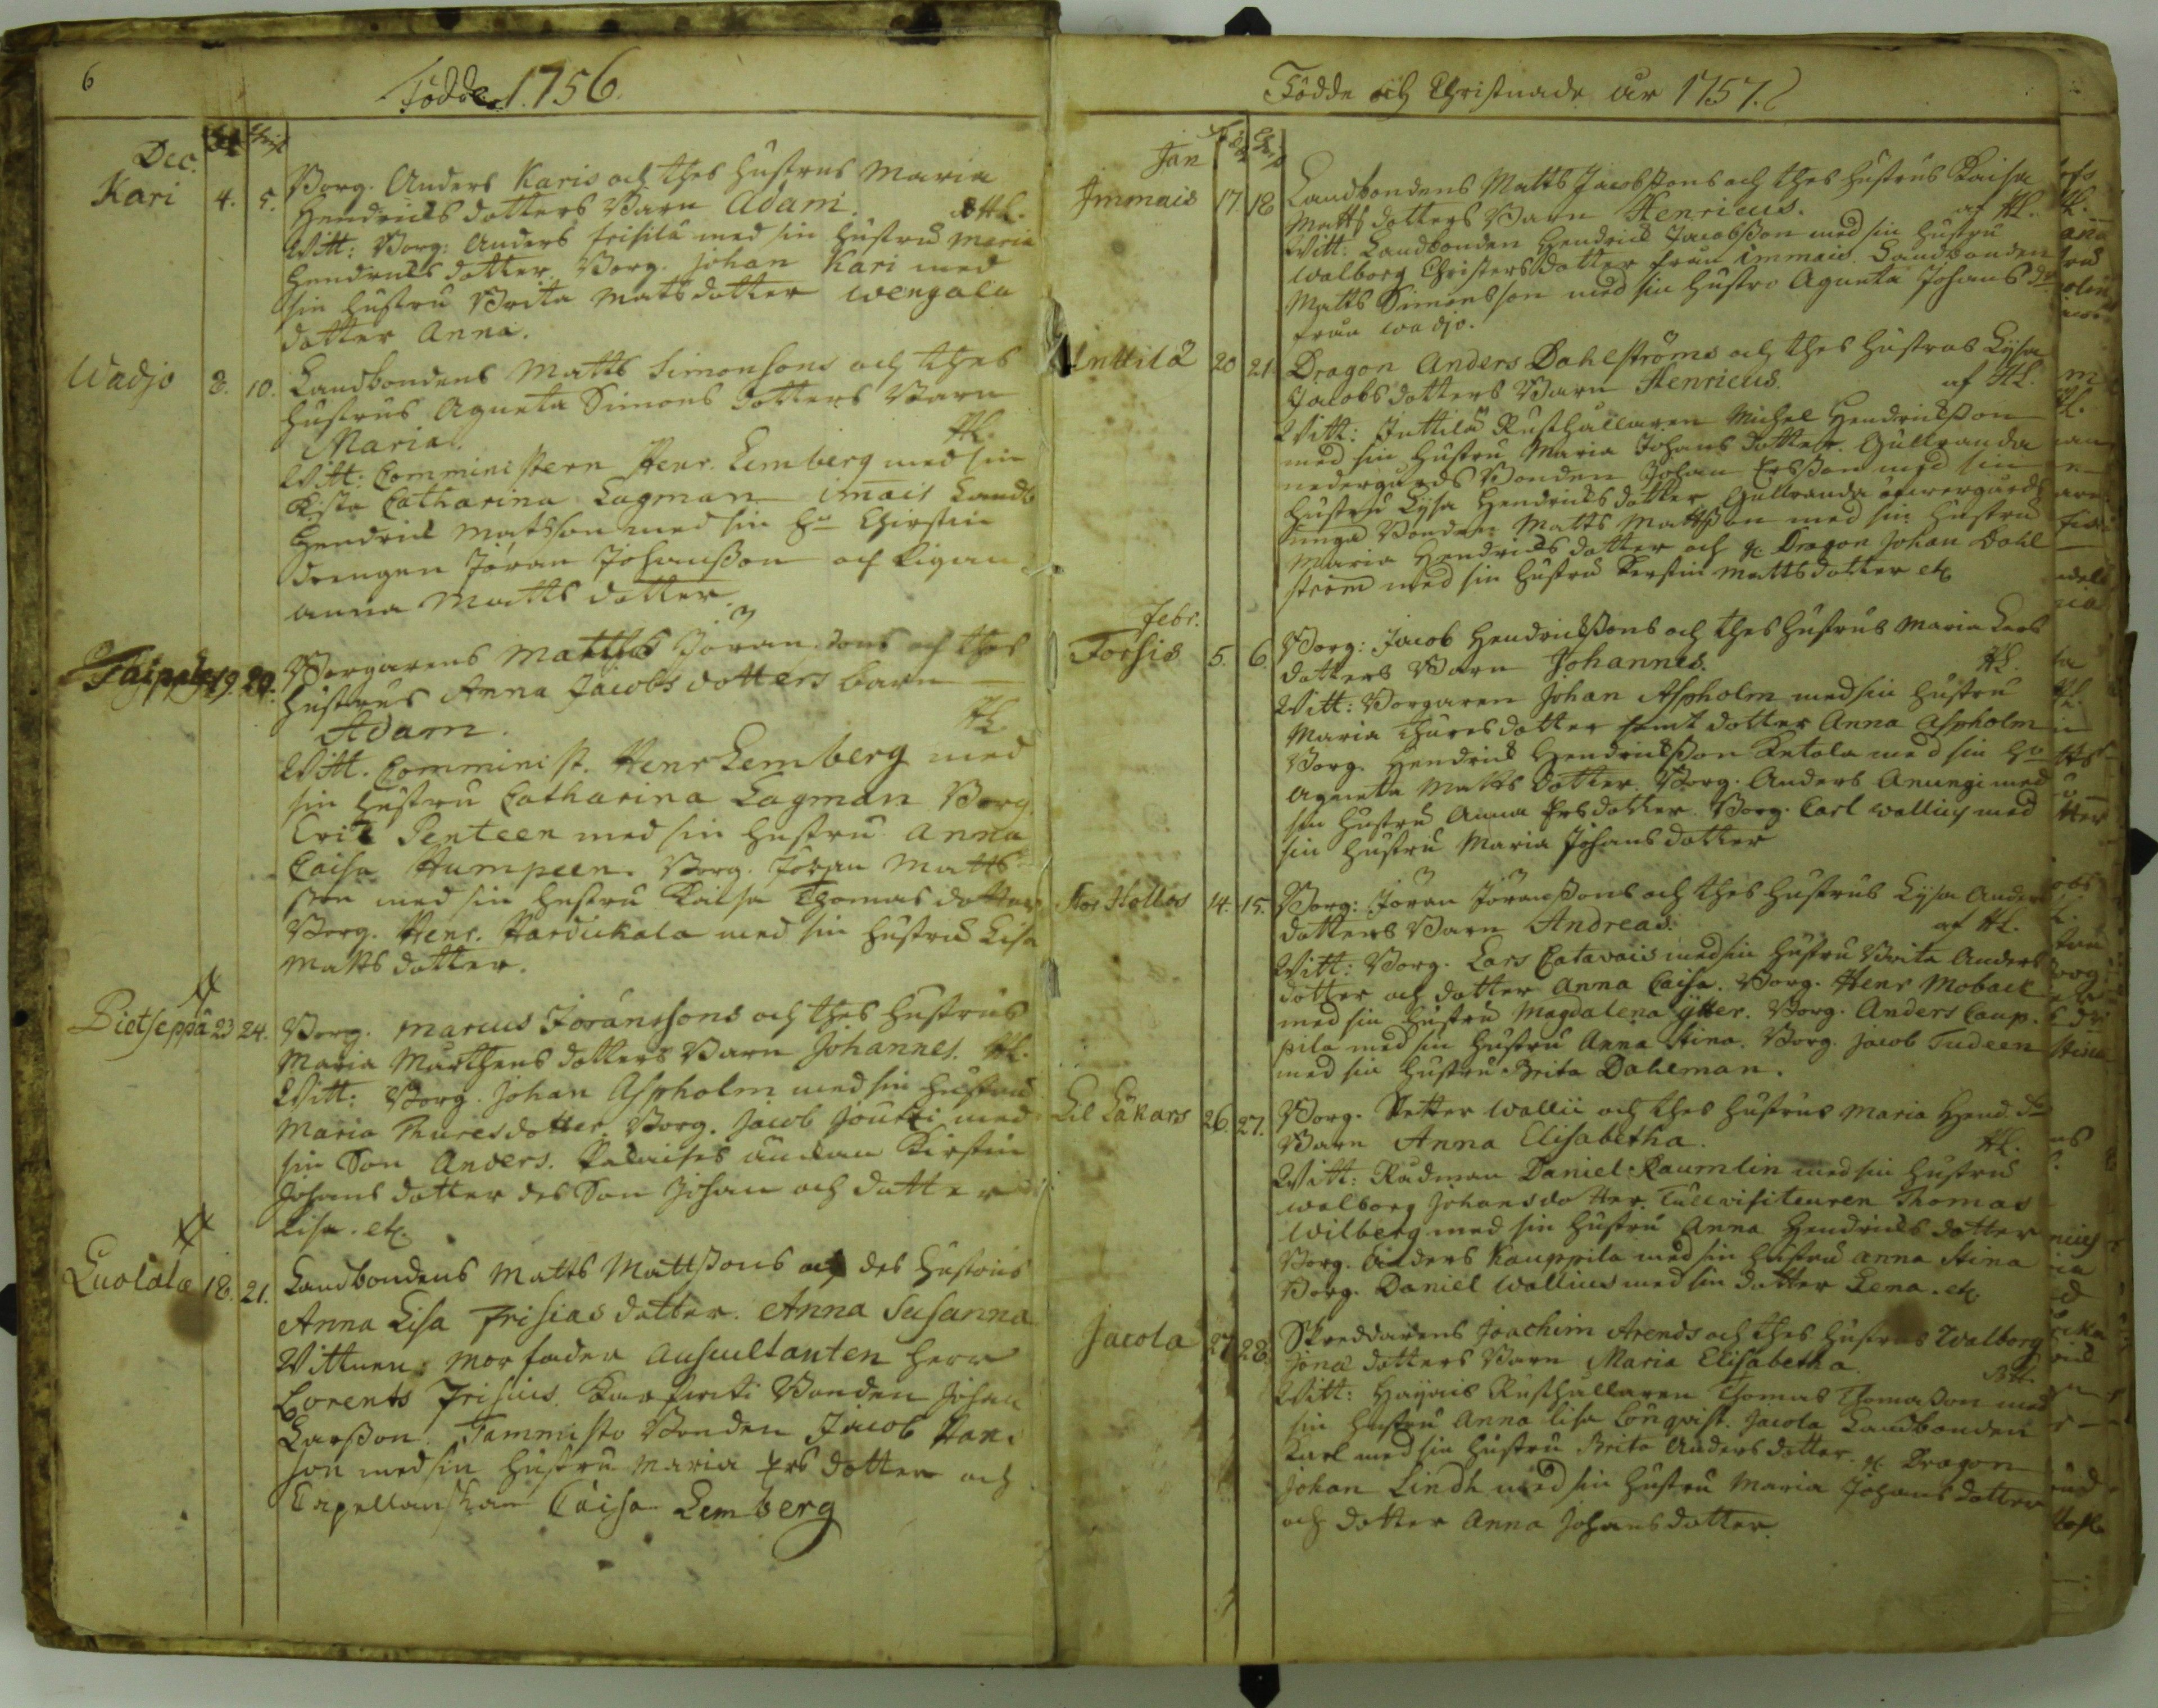 6
Födde 1756.
Dec.
Kari 4. 5. Borg. Anders Karis och thes hustrus Maria
Hendrichs dotters Barn Adam. HL.
Witt: Borg: Anders frisila med sin hustru Maria
Hendrichs dotter. Borg. Johan Kari med
sin hustru Brita Mats dotter wengala
dotter Anna.
Wadjo 8. 10. Landbondens Matts Simonsons och thes
hustrus Agneta Simons dotters Barn
Maria. HL.
Witt: Comministern Henr. Lemberg med sin
Catharina Lagman imais Landb
Hendrich Matsson med sin hu Christin
drengen Jöran Johansson och Pigan
anna Matts dotter
Taipale 19. 20. Borgarens Matts Jöransons och thes
hustrus Anna Jacobs dotters barn
Adam. HL
Witt. Comminist. Henr Lemberg med
sin hustru Catharina Lagman Borg
Eric Penteen med sin hustru Anna
Caisa Humpeen. Borg. Jöran Matts
son med sin hustru Kaisa Thomas dotter
Borg. Henr. Hardickala med sin hustru Lisa
Matts dotter.
Pietseppä 23 24. Borg. Marcus Joranssons och thes hustrus
Maria Marthens dotters Barn Johannes. HL.
Witt: Borg. Johan Aspholm med sin hustru
Maria Thuresdotter. Borg. Jacob Joutzi med
sin Son Anders. enkan Kirstin
Johans dotter des Son Johan och dotter
Lisa. etc.
Luolala 18. 21. Landbondens Matts Mattssons och des hustrus
Anna Lisa Frisias dotter. Anna Susanna
Wittnen: morfader Auscultanten Herr
Lorents Frisius. Bonden Johan
Larsson. Tammisto Bonden Jacob
son med sin hustru Maria Ers dotter och
Capellanskan Caisa Lemberg
Födde och Christnade år 1757.
Jan
Immais 17 18 Landbondens Matts Jacobssons och thes hustrus Kaisa
Matts dotters Barn Henricus. af HL.
Witt: Landbonden Hendrich Jacobsson med sin hustru
Walborg Christers dotter från immais. Landbonden
Matts Simonsson med sin hustru Agneta Johans dr
från wadjo.
Inttilä 20 21. Dragon Anders Dahlströms och thes hustrus Lysa
Jacobs dotters Barn Henricus. af HL.
Witt: Inttilä Rusthållaren Michel Hendrichsson
med sin hustru Maria Johans dotter. Gullranda
nedergårds Bonden Johan Ersson med sin
hustru Lysa Hendrichs dotter Gullranda öfwergårds
unga Bonden Matts Mattsson med sin hustru
Maria Hendrichs dotter och Dragon Johan Dahl
ström med sin hustru Kerstin Mattsdotter etc
Febr.
Torsis 5. 6. Borg: Jacob Hendrichssons och thes hustrus Maria Lars
dotters Barn Johannes. HL.
Witt: Borgaren Johan Aspholm med sin hustru
Maria Thuresdotter samt dotter Anna Aspholm
Borg. Hendrich Hendrichsson Ketola med sin hu
Agneta Matts dotter. Borg. Anders Anungi med
sin hustru Anna Ersdotter. Borg. Carl wallius med
sin hustru Maria Johans dotter
14. 15. Borg: Jöran Jöranssons och thes hustrus Lysa Anders
dotters Barn Andreas. af HL.
Witt: Borg. Lars Catavais med sin hustru Brita Anders
dotter och dotter Anna Caisa. Borg. Henr Moback
med sin hustru Magdalena ytter. Borg. Anders Caup-
pila med sin hustru Anna Stina. Borg. Jacob Tudeen
med sin hustru Brita Dahlman.
Lil Läkars 26. 27. Borg. Petter Wallii och thes hustrus Maria Hend. dr
Barn Anna Elisabetha. HL.
Witt: Rådman Daniel Raumlin med sin hustru
walborg Johansdotter. Tullvisiteuren Thomas
Wilberg med sin hustru Anna Hendrichs dotter
Borg. Anders Kauppila med sin hustru anna Stina
Borg. Daniel Wallius med sin dotter Lena. etc
Jacola 27 28. Skreddarens Joachim Arends och thes hustrus Walborg
Jonæ dotters Barn Maria Elisabetha. HL
Witt: Hayais Rusthållaren Thomas Thomasson med
sin hustru Anna Lisa Lönqvist. Jacola Landbonden
Karl med sin hustru Brita Anders dotter. Dragon
Johan Lindh med sin hustru Maria Johans dotter
och dotter Anna Johansdotter.